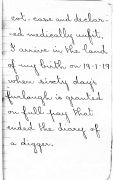 cot. case and declar-
-ed medically unfit.
I arrive in the land
of my birth on 19-1-19
when sixty days
furlough is granted
on full pay that
ended the diary of
a digger.